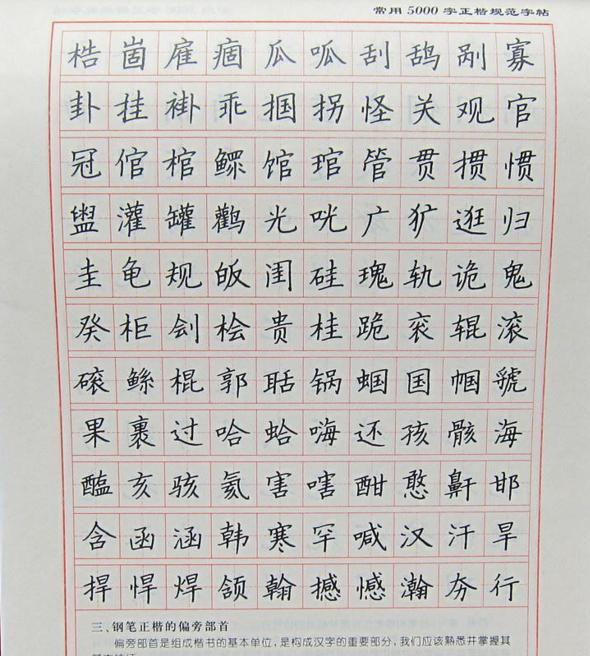 常用5000字正楷规范字帖
梏崮雇痼瓜呱刮鸹剐寡
卦挂褂乖掴拐怪关观官
冠倌棺鳏馆琯管贯掼惯
盥灌罐鹳光咣广犷逛归
圭龟规皈闺硅瑰轨诡鬼
癸柜刽桧贵桂跪衮辊滚
磙鲧棍郭聒锅蝈国帼虢
果裹过哈蛤嗨还孩骸海
醢亥骇氦害嗐酣憨鼾邯
含函涵韩寒罕喊汉汗旱
捍悍焊颔翰撼憾瀚夯行
三、钢笔正楷的偏旁部首
偏旁部首是组成楷书的基本单位,是构成汉字的重要部分,我们应该熟悉并掌握其